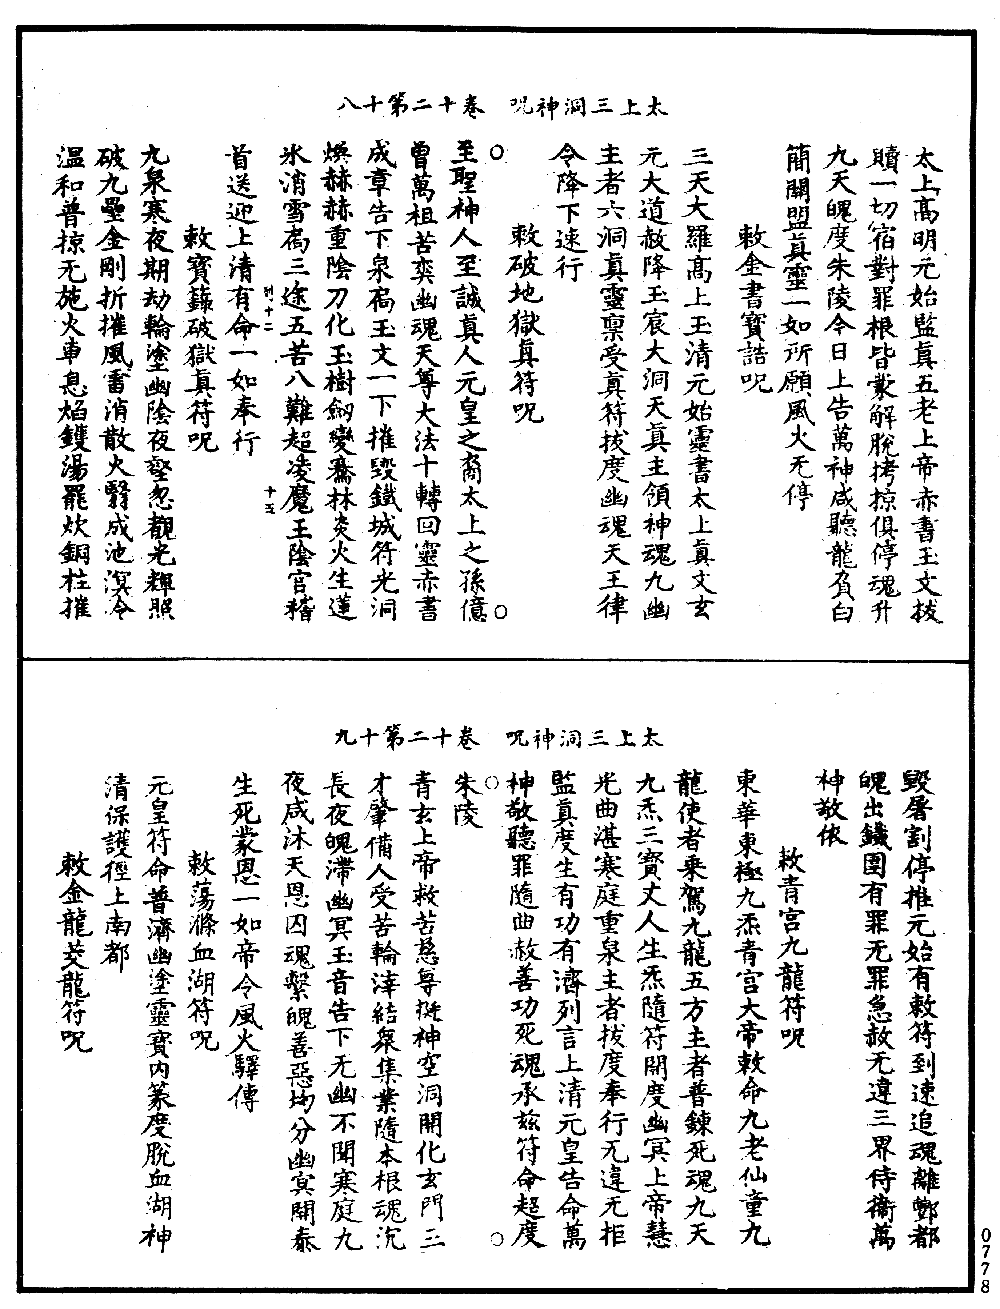 太上三洞神呪　卷十二第十八
太上高明元始監真五老上帝赤書玉文拔
贖一切宿對罪根皆蒙解脫拷掠俱停魂升
九天魄度朱陵今日上告萬神咸聽龍負白
簡關盟真靈一如所願風火无停
敕金書寶誥呪
三天大羅高上玉清元始靈書太上真文玄
元大道赦降玉宸大洞天真主領神魂九幽
主者六洞真靈稟受真符拔度幽魂天王律
令降下速行
敕破地獄真符呪
至聖神人至誠真人元皇之裔太上之孫億
曾萬祖苦奕幽魂天尊大法十轉回靈赤書
成章告下泉扃玉文一下摧毀鐵城符光洞
煥赫赫重陰刀化玉樹劒變騫林炎火生蓮
氷消雪扃三途五苦八難超凌魔王陰官稽
首送迎上清有命一如奉行
敕寶籙破獄真符呪
九泉寒夜期劫輪塗幽陰夜壑忽觀光輝照
破九壘金剛折摧風雷消散火翳成池溟泠
溫和普掠无施火車息焰鑊湯罷炊銅柱摧
太上三洞神呪　卷十二第十九
毀屠割停推元始有敕符到速追魂離酆都
魄出鐵圍有罪无罪急赦无違三界侍衞萬
神敬依
敕青宮九龍符呪
東華東極九炁青宮大帝敕命九老仙童九
龍使者乘駕九龍五方主者普鍊死魂九天
九炁三寶丈人生炁隨符開度幽冥上帝慧
光曲湛寒庭重泉主者拔度奉行无違无拒
監真度生有功有濟列言上清元皇告命萬
神敬聽罪隨曲赦善功死魂承茲符命超度
朱陵
青玄上帝救苦慈尊挺神空洞開化玄門三
才肇備人受苦輪滓結衆集業隨本根魂沉
長夜魄滯幽冥玉音告下无幽不聞寒庭九
夜咸沐天恩囚魂繫魄善惡均分幽冥開泰
生死蒙恩一如帝令風火驛傳
敕蕩滌血湖符呪
元皇符命普濟幽塗靈寶內篆度脫血湖神
清保護徑上南都
敕金龍茭龍符呪
0778